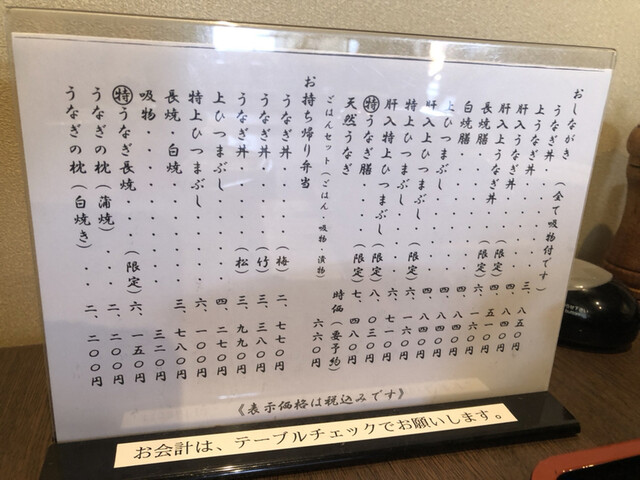 おしながき
うなぎ丼・・・(全て吸物付です)三、八五〇円
上うなぎ丼・・・・・・四、八四〇円
肝入うなぎ丼・・・(限定)四、五一〇円
肝入上うなぎ丼(限定)
長焼膳・・・・・・四、八四〇円
白焼膳・・・・・・四、八四〇円
上ひつまぶし・・・・四、八四〇円
肝入上ひつまぶし(限定)
特上ひつまぶし・・・六、一六〇円
肝入特上ひつまぶし(限定)
㊕うなぎ膳・・・(限定)七、四八〇円
天然うなぎ・・・時価(要予約)
ごはんセット(ごはん 吸物 漬物)六六〇円
お持ち帰り弁当
うなぎ丼・・・・(梅)二、七七〇円
うなぎ丼・・・・(竹)三、三八〇円
うなぎ丼・・・・(松)三、九九〇円
上ひつまぶし・・・・四、二七〇円
特上ひつまぶし・・・六、一〇〇円
長焼・白焼・・・・三、七八〇円
吸物・・・・・・三二〇円
㊕うなぎ長焼・・(限定)六、一五〇円
うなぎの枕(蒲焼)・・二、二〇〇円
うなぎの枕(白焼き)・・二、二〇〇円
《表示価格は税込みです》
お会計は、テーブルチェックでお願いします。